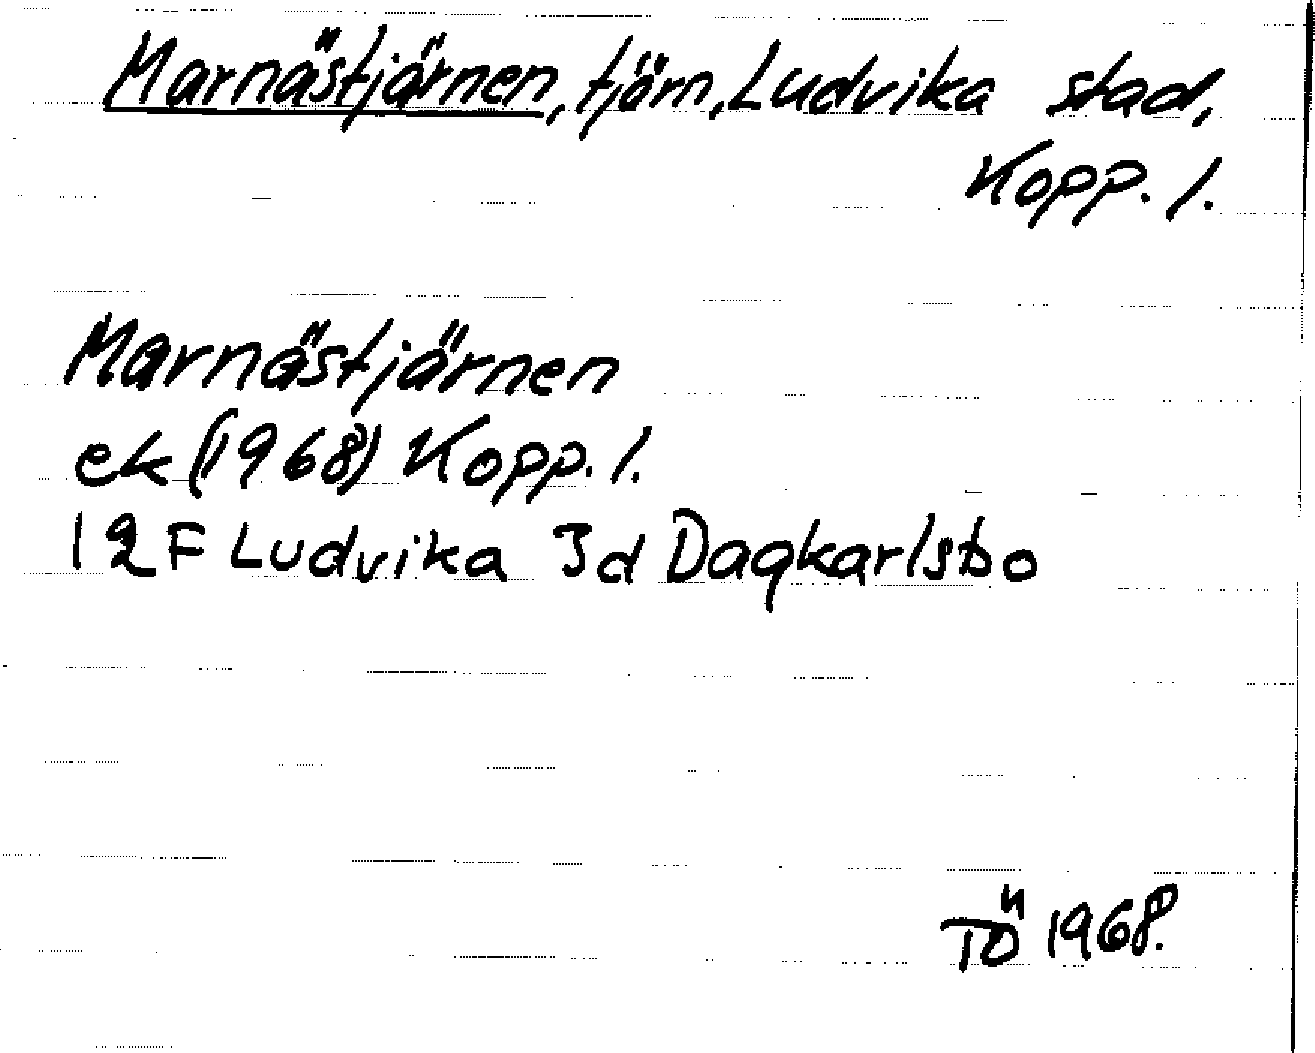 Marnästjärnen, tjärn, Ludvika stad,
Kopp. l.
Marnästjärnen
ek (1968) Kopp. l.
12F Ludvika 3d Dagkarlsbo
TÖ 1968.